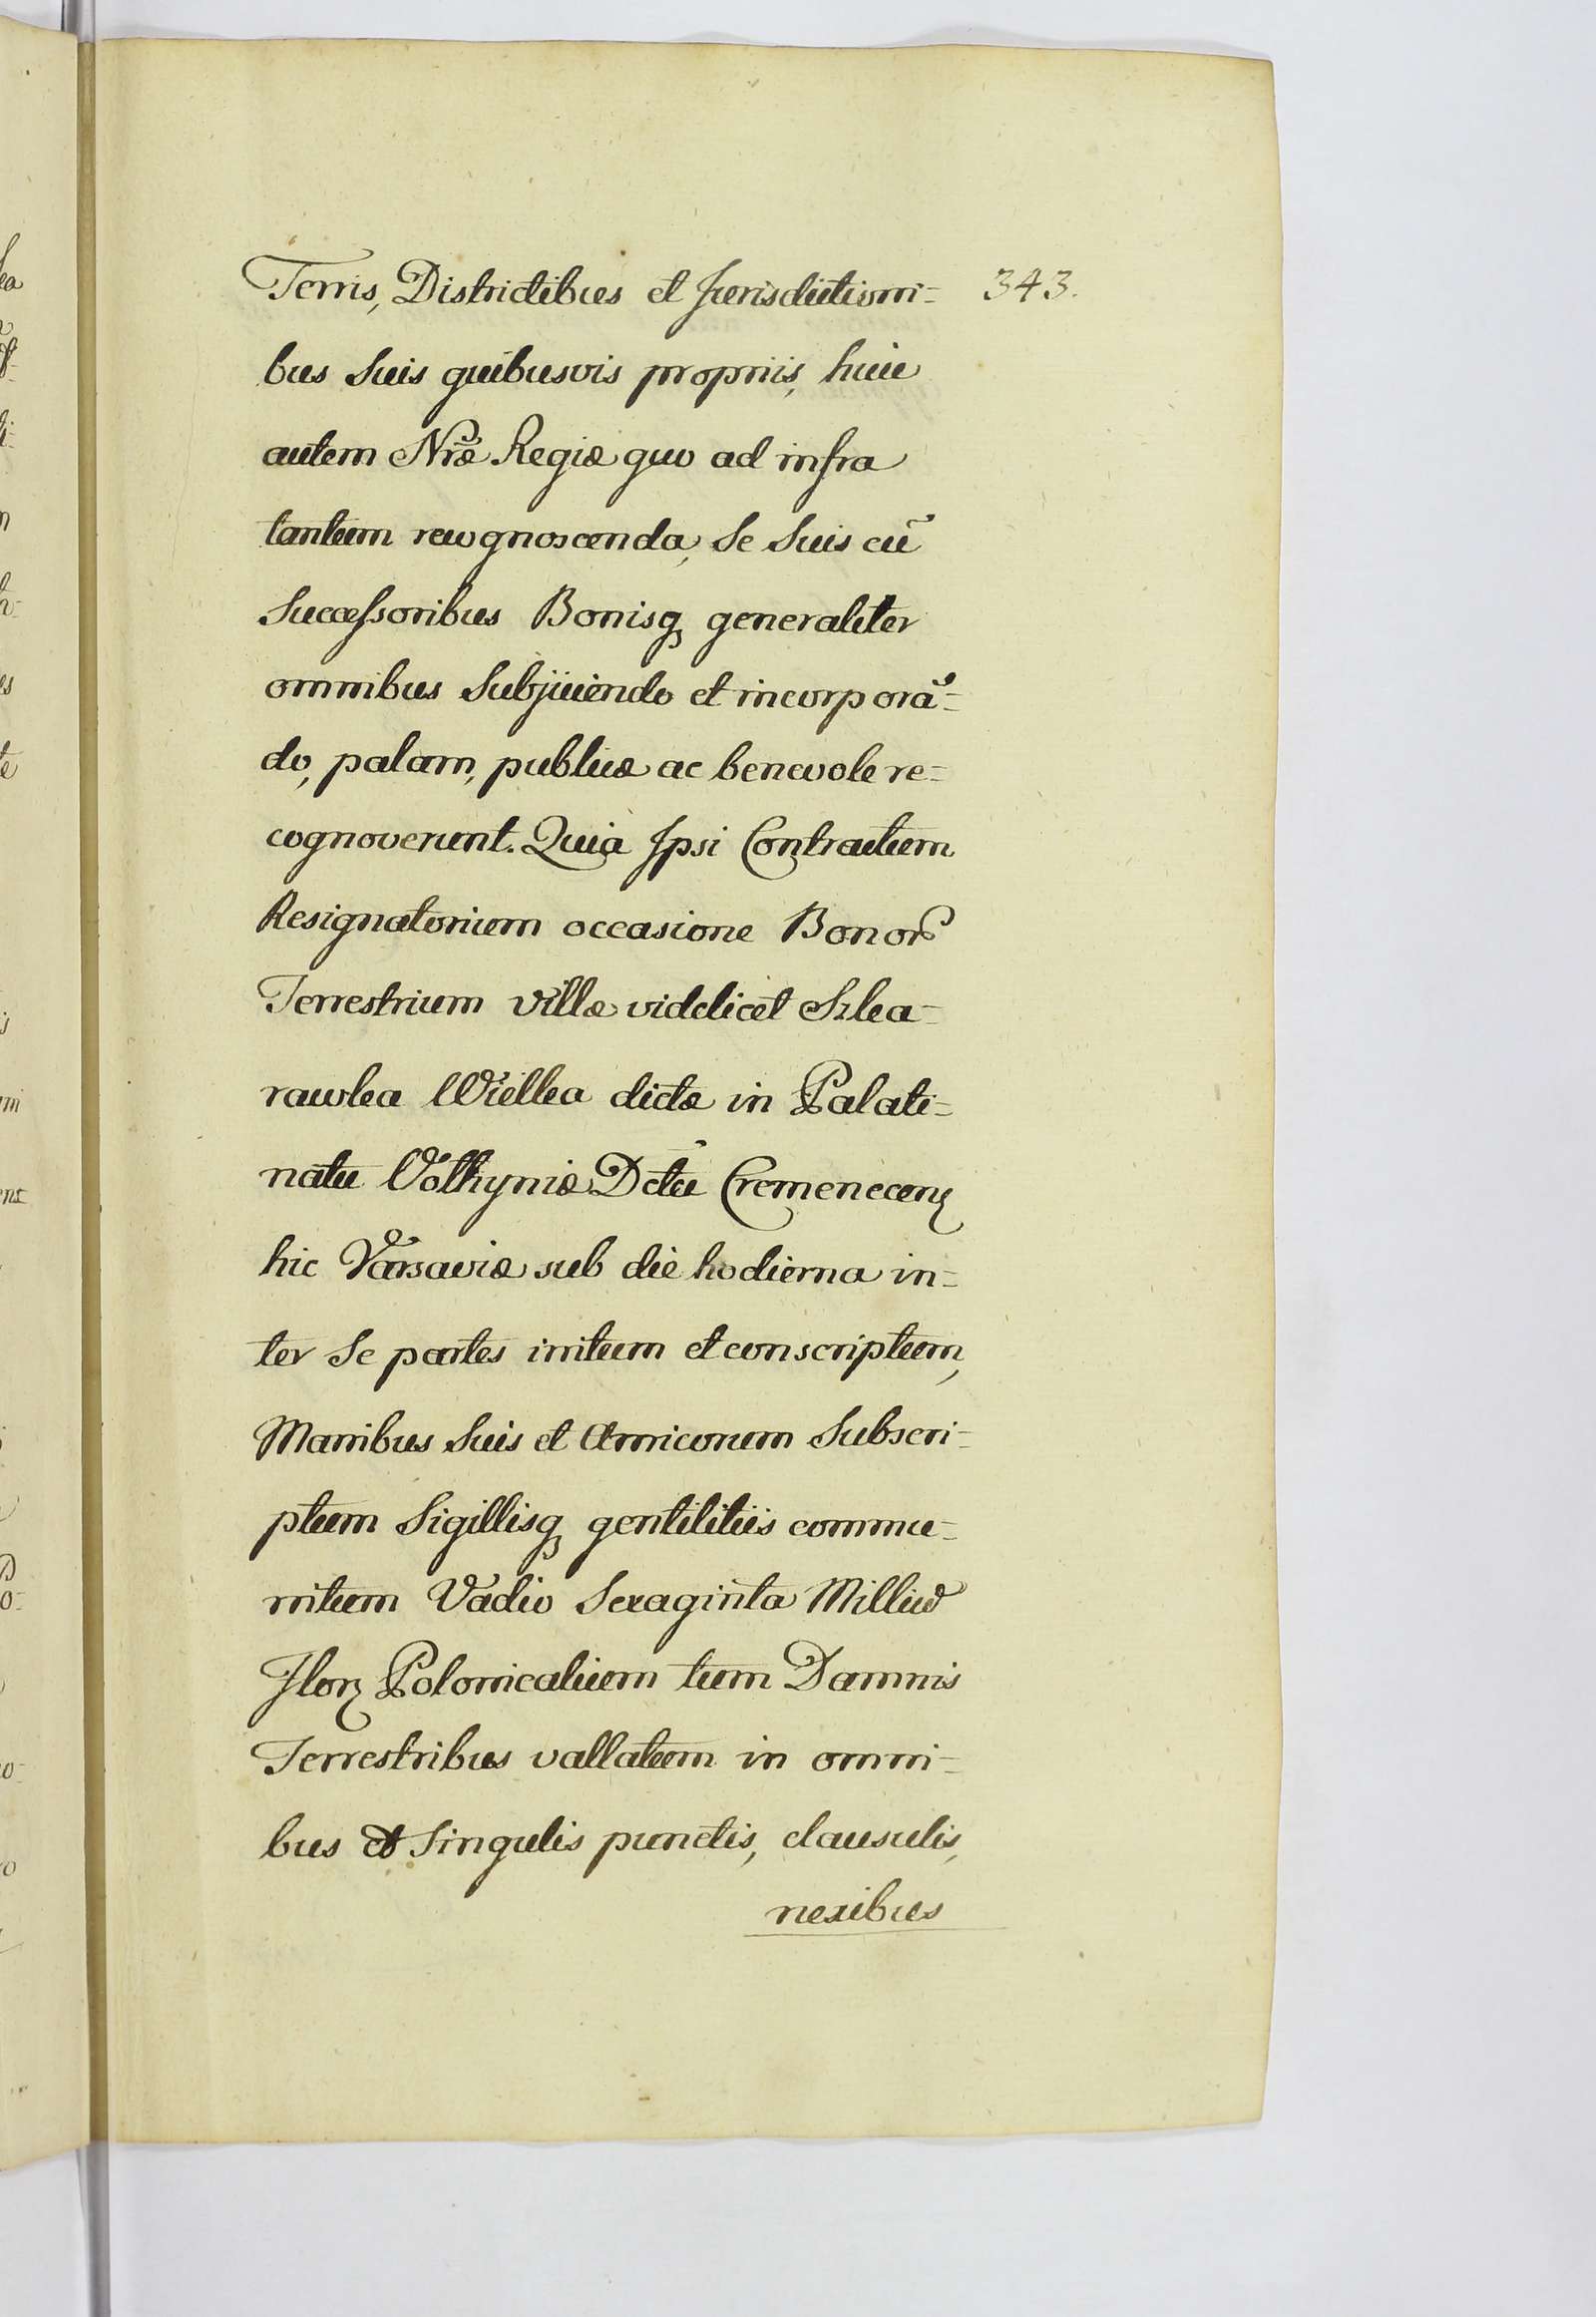 Terris, Districtibus et Jurisdictioni=
343.
bus Suis quibusvis propriis, huic
autem Nræ Regiæ quo ad infra
tantum recognoscenda, Se Suis cũ
Successoribus Bonisq, generaliter
omnibus Subjiciendo et incorporã=
do, palam, publicæ ac benevole re=
cognoverunt. Quia Ipsi Contractum
Resignatorium occasione Bonor
Terrestrium Villæ videlicet Skla=
rawka Wielka dictæ in Palati=
natu Volhyniæ Dctũ Cremenecen
hic Varsaviæ sub die hodierna in=
ter Se partes initum et conscriptum,
Manibus Suis et Amicorum Subscri=
ptum Sigillisq, gentilitiis commu=
nitum Vadio Sexaginta Milliu
Flor Polonicalium tum Damnis
Terrestribus vallatum in omni=
bus et Singulis punctis, clausulis,
nexibus